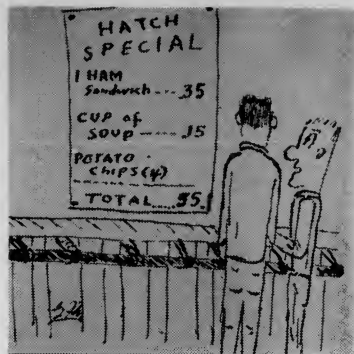 HATCH
SPECIAL
1 HAM
Sandwich --- .35
CUP of
SOUP ---- .15
POTATO
chips (4)
TOTAL